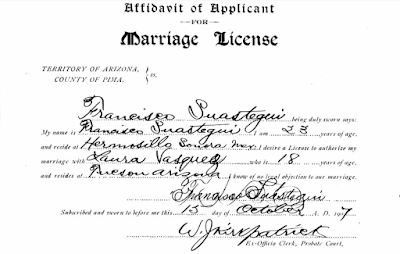 Affidavit of Applicant
FOR
Marriage License
TERRITORY OF ARIZONA,
COUNTY OF PIMA. } ss.
Francisco Suastegui being duly sworn says:
My name is Francisco Suastegui I am 23 years of age,
and reside at Hermosillo Sonora Mex. I desire a License to authorize my
marriage with Laura Vasquez who is 18 years of age,
and resides at Tucson Arizona I know of no legal objection to our marriage.
Francisco Suastegui
Subscribed and sworn to before me this 15 day of October A. D. 1907
W. J. Kirkpatrick
Ex-Officio Clerk, Probate Court.